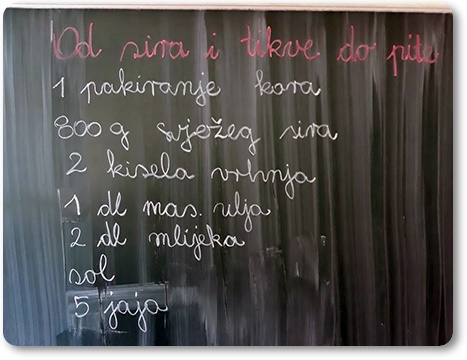 Od sira i tikve do pite
1 pakiranje kora
800 g svježeg sira
2 kisela vrhnja
1 dl mas. ulja
2 dl mlijeka
sol
5 jaja